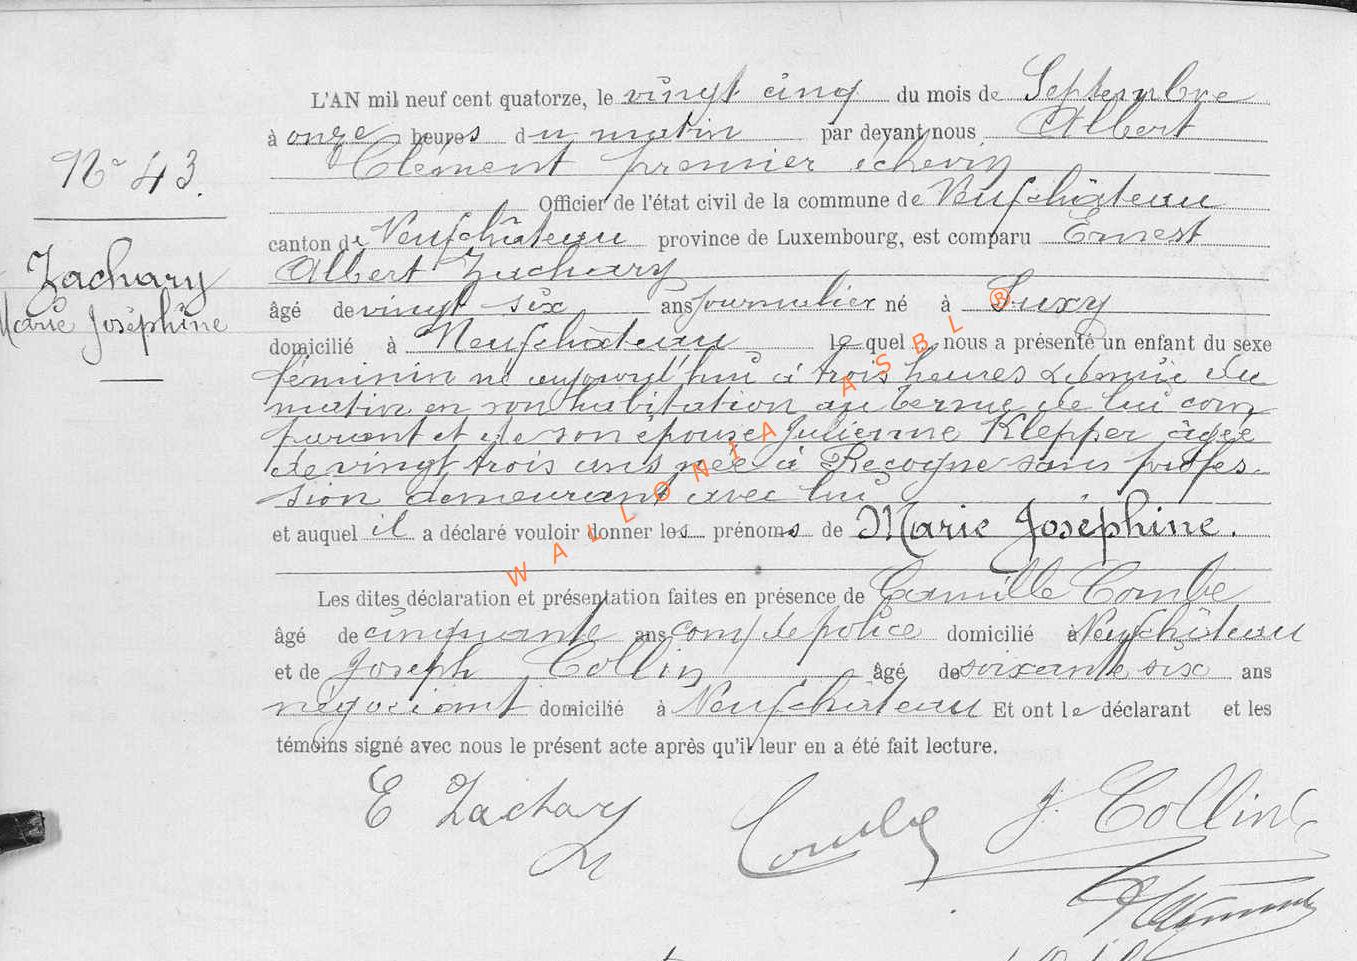 N° 43.
Zachary
Marie Joséphine
L'AN mil neuf cent quatorze, le vingt cinq du mois de Septembre
à onze heures du matin par devant nous Albert
Clément premier échevin
Officier de l'état civil de la commune de Neufchâteau
canton de Neufchâteau province de Luxembourg, est comparu Ernest
Albert Zachary
âgé de vingt six ans journalier né à Suxy
domicilié à Neufchâteau lequel nous a présenté un enfant du sexe
féminin né aujourd'hui à trois heures & demie du
matin en son habitation au Terme de lui com
parant et de son épouse Julienne Klepper âgée
de vingt trois ans née à Recogne sans profes-
sion demeurant avec lui
et auquel il a déclaré vouloir donner les prénoms de Marie Joséphine.
Les dites déclaration et présentation faites en présence de Camille Combe
âgé de cinquante ans com/ de police domicilié à Neufchâteau
et de Joseph Collin âgé de soixante six ans
négociant domicilié à Neufchâteau Et ont le déclarant et les
témoins signé avec nous le présent acte après qu'il leur en a été fait lecture.
E Zachary
Combe
J. Collin
WALLONIA ASBL ®